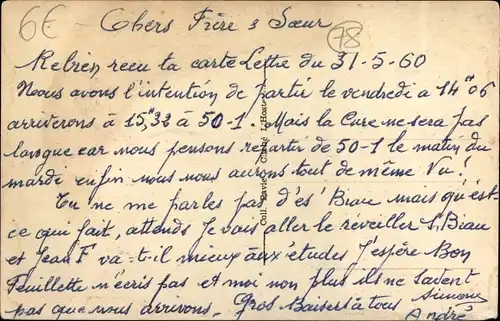 6€ - Chers Frère & Sœur
78
Rebien reçu ta carte Lettre du 31-5-60
Nous avons l'intention de partir le vendredi à 14H06
arriverons à 15H32 à 50-1. Mais la Cure ne sera pas
longue car nous pensons repartir de 50-1 le matin du
mardi enfin nous nous aurons tout de même Vu!
Tu ne me parles pas d'es' Biau mais qu'est-
ce qui fait, attends Je vais aller le réveiller S. Biau
et Jean F va-t-il mieux aux études J'espère Bon
Feuillette n'écris pas et moi non plus ils ne savent
pas que nous arrivons. Gros Baisers à tous Simone
André